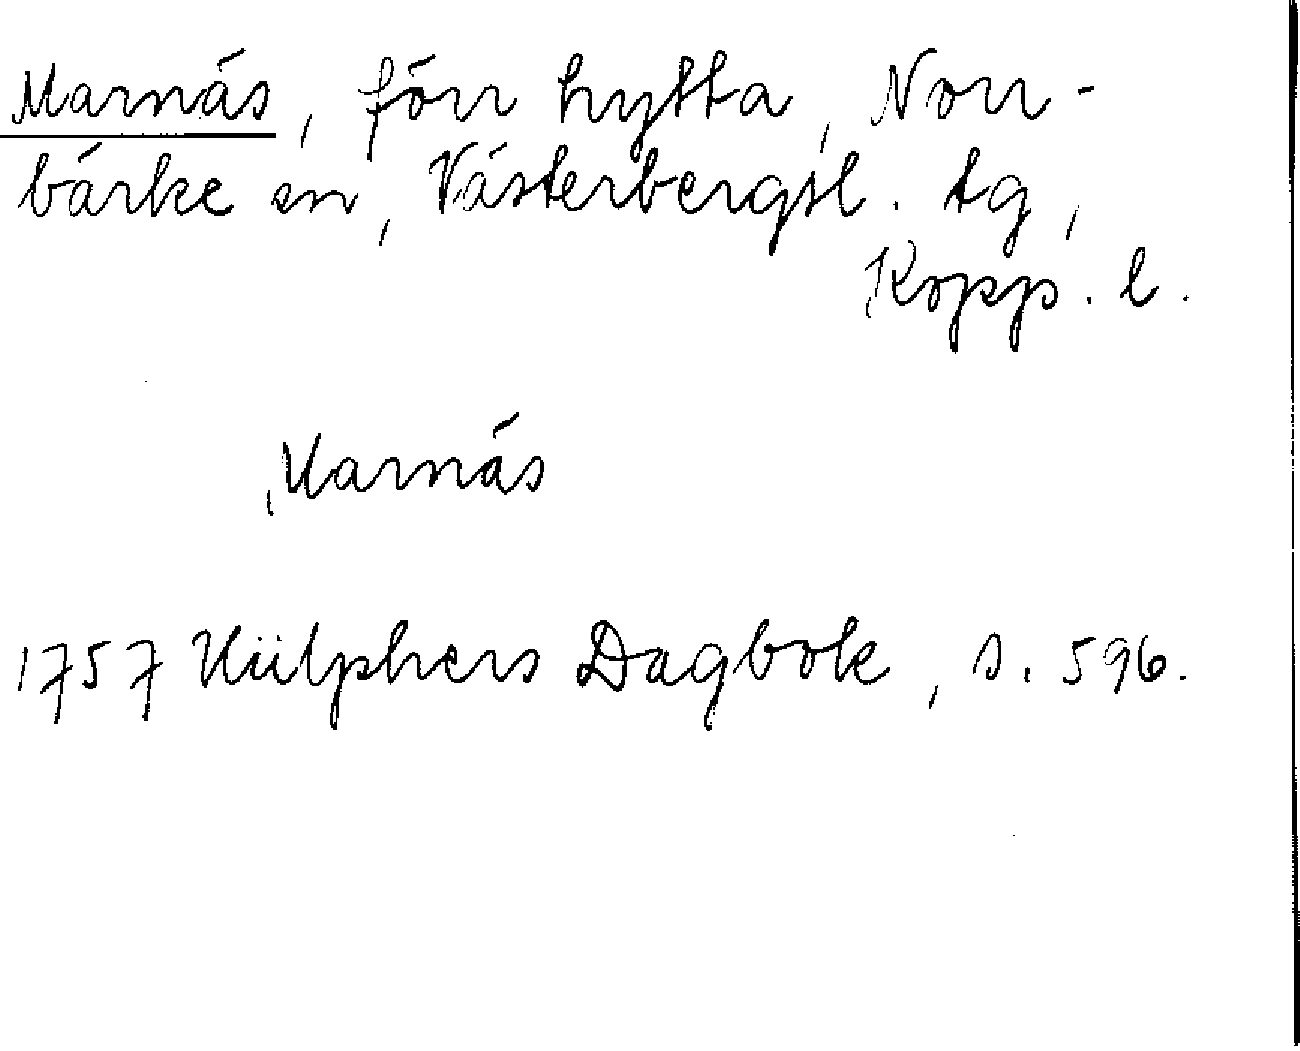 Marnäs, förr hytta, Norr-
bärke sn, Västerbergsl. tg,
Kopp. l.
Marnäs
1757 Hülphers Dagbok, s. 596.